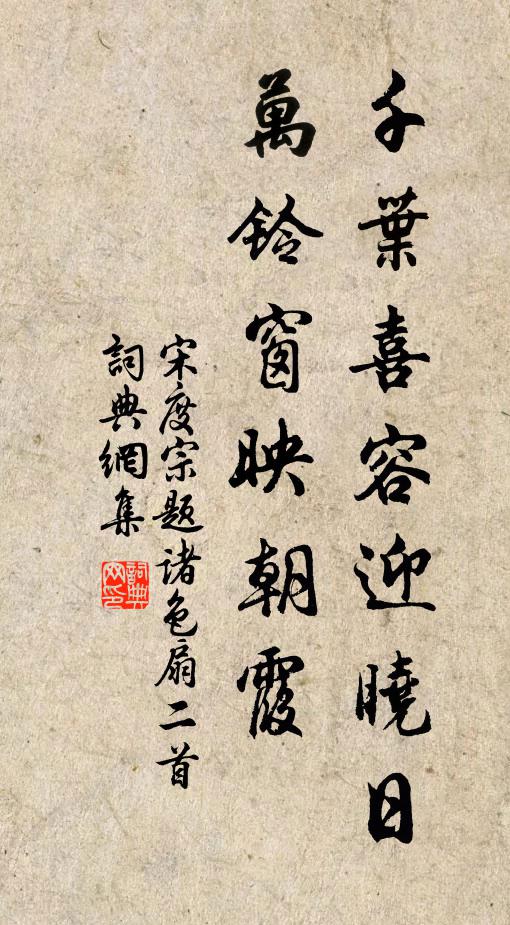 千葉喜容迎曉日
萬鈴窗映朝霞
宋度宗題诸色扇二首
詞典網集
詞典网印